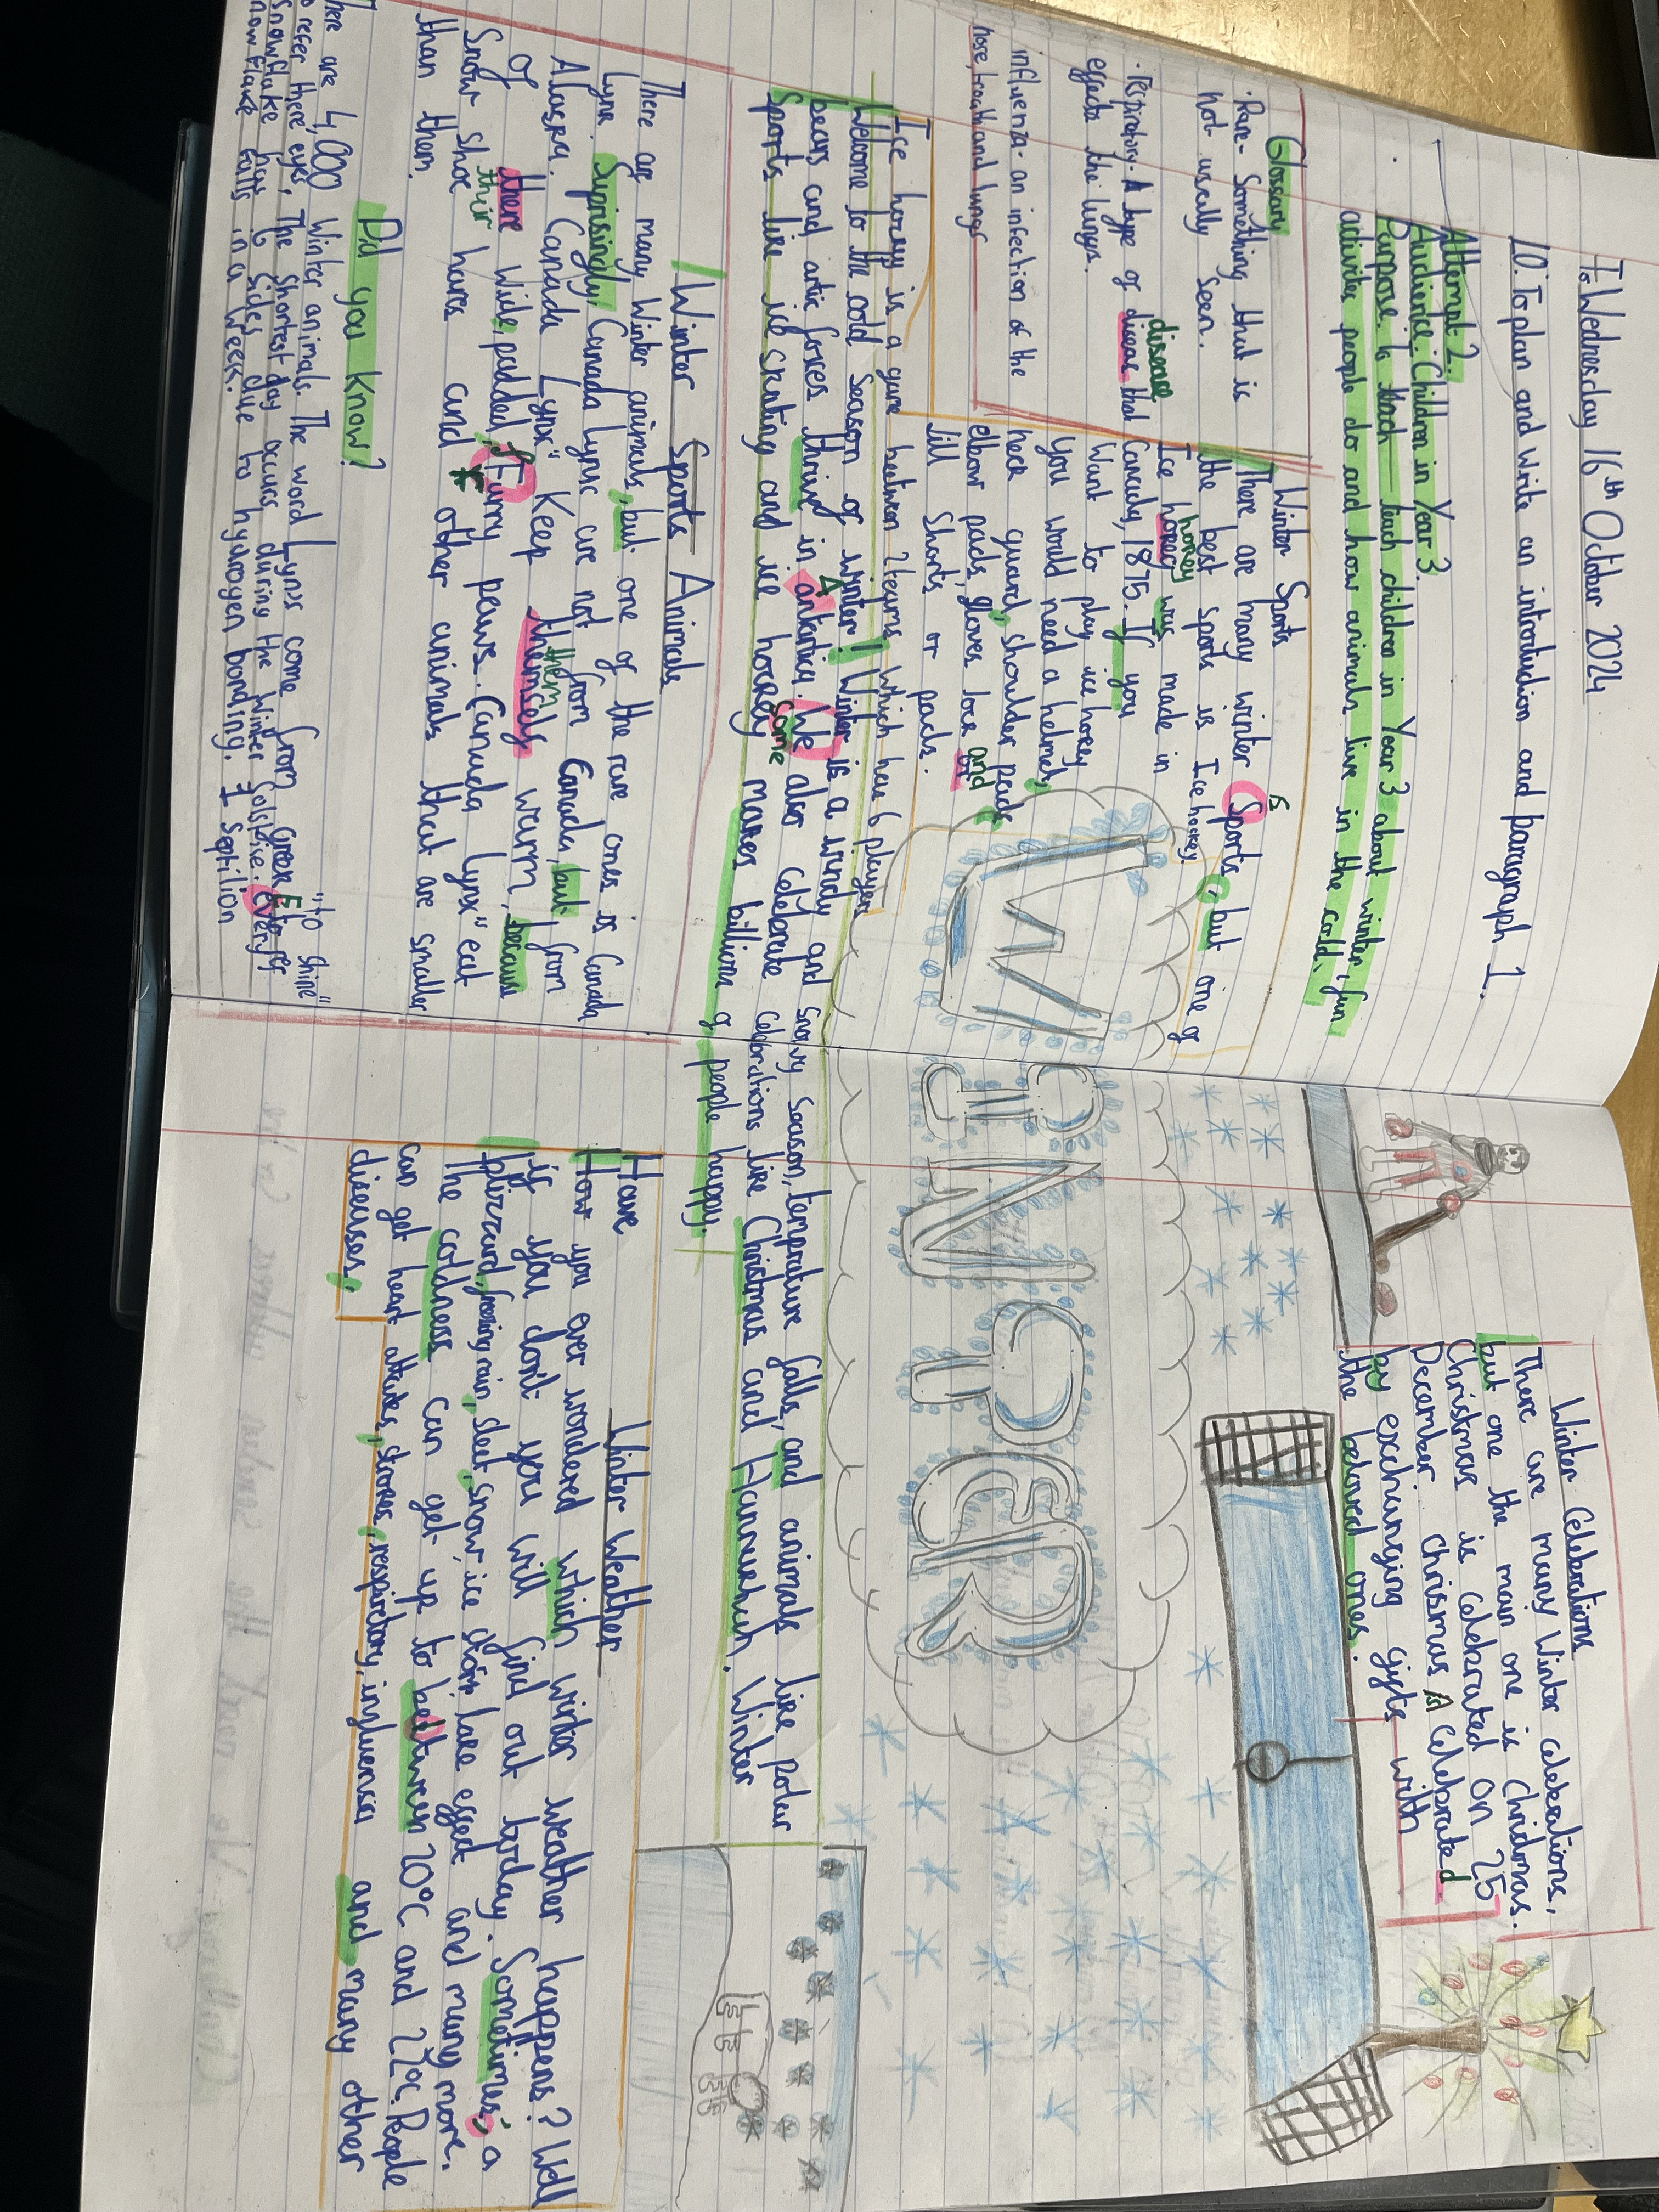 Wednesday 16th October 2024
LO: To plan and write an introduction and paragraph 1.
Attempt 2.
Audience: Children in Year 3.
Purpose: to teach children in Year 3 about winter, fun
activites people do and how animals live in the cold.
Glossary
• Rare - Something that is
not usually seen.
• respiratory - A type of dieas that
disease
effects the lungs.
influenza - an infection of the
nose, troath and lungs
Winter Sports
There are many winter Sports, but one of
s
the best sports is Ice hockey.
Ice hokey was made in
hockey
Canada, 1875. If you
Want to play ice hokey
you would need a helmet,
neck guard, shoulder pads,
elbow pads, gloves, lose and
jill shorts or pads.
Ice hokey is a game between 2 teams which has 6 players
WINTER
Welcome to the cold season of winter! Winter is a windy and snowy season, temprature falls, and animals like Polar
bears and artic foxes thrive in antartica. We also celebrate celebrations like Christmas and Hannukah. Winter
A
some
Sports like ice skating and ice hockey makes billions of people happy.
Winter Sports Animals
There are many Winter animals, but one of the rare ones is Canada
Lynx. Suprisingly, Canada Lynx are not from Canada, but from
Alaska. Canada Lynx" Keep themselfs warm, because
them
of there wide, padded, furry paws. Canada Lynx" eat
their
Snow shoe hares and other animals that are smaller
than them.
Did you know?
There are 4,000 Winter animals. The word Lynx come from Greek "to shine"
to refer there eyes, The shortest day occurs during the Winter Solstice. Every
E
snowflake has 6 sides due to hydrogen bonding. 1 Septilion
snowflake falls in a week.
Winter Celebrations
There are many Winter celebrations,
but one the main one is Christmas.
Christmas is celebrated on 25
December. Chrismas is celebrated
by exchanging gifts with
the beloved ones.
Winter Weather
Have
How you ever wondered which winter weather happens? Well
if you don't you will find out today. Sometimes, a
blizzard, freezing rain, sleet, snow, ice storm, lake effect and many more.
The coldness can get up to between 20°C and 22°C. People
can get heart attakes, strokes, respirctory, influenca and many other
diseases.